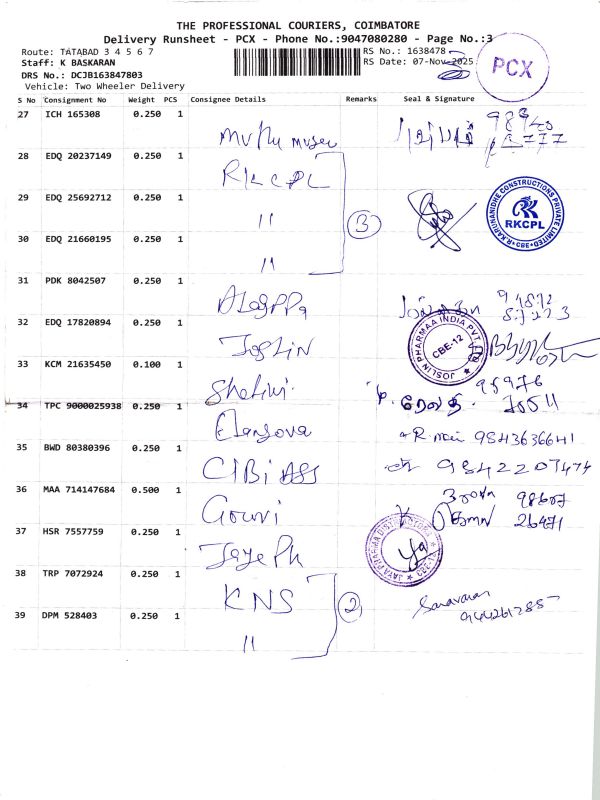 THE PROFESSIONAL COURIERS, COIMBATORE
Delivery Runsheet - PCX - Phone No.:9047080280 - Page No.:3
Route: TATABAD 3 4 5 6 7
RS No.: 1638478
Staff: K BASKARAN
RS Date: 07-Nov-2025
DRS No.: DCJB163847803
Vehicle: Two Wheeler Delivery
PCX
S No Consignment No Weight PCS Consignee Details Remarks Seal & Signature
27 ICH 165308 0.250 1
28 EDQ 20237149 0.250 1 RKCPL
29 EDQ 25692712 0.250 1 11
3
R KARUNANIDHE CONSTRUCTIONS PRIVATE LIMITED
RKCPL
CBE
30 EDQ 21660195 0.250 1 11
31 PDK 8042507 0.250 1
32 EDQ 17820894 0.250 1 Joslin
JOSLIN PHARMAA INDIA PVT LTD
CBE-12
33 KCM 21635450 0.100 1 Shalini
34 TPC 9000025938 0.250 1 Elangova
35 BWD 80380396 0.250 1 CIBI ASS
9843636641
9842207474
36 MAA 714147684 0.500 1 Gowri
26471
37 HSR 7557759 0.250 1 Jaya Ph
JAYA PHARMA DISTRIBUTORS
38 TRP 7072924 0.250 1 KNS
2
Saravanan
39 DPM 528403 0.250 1 11